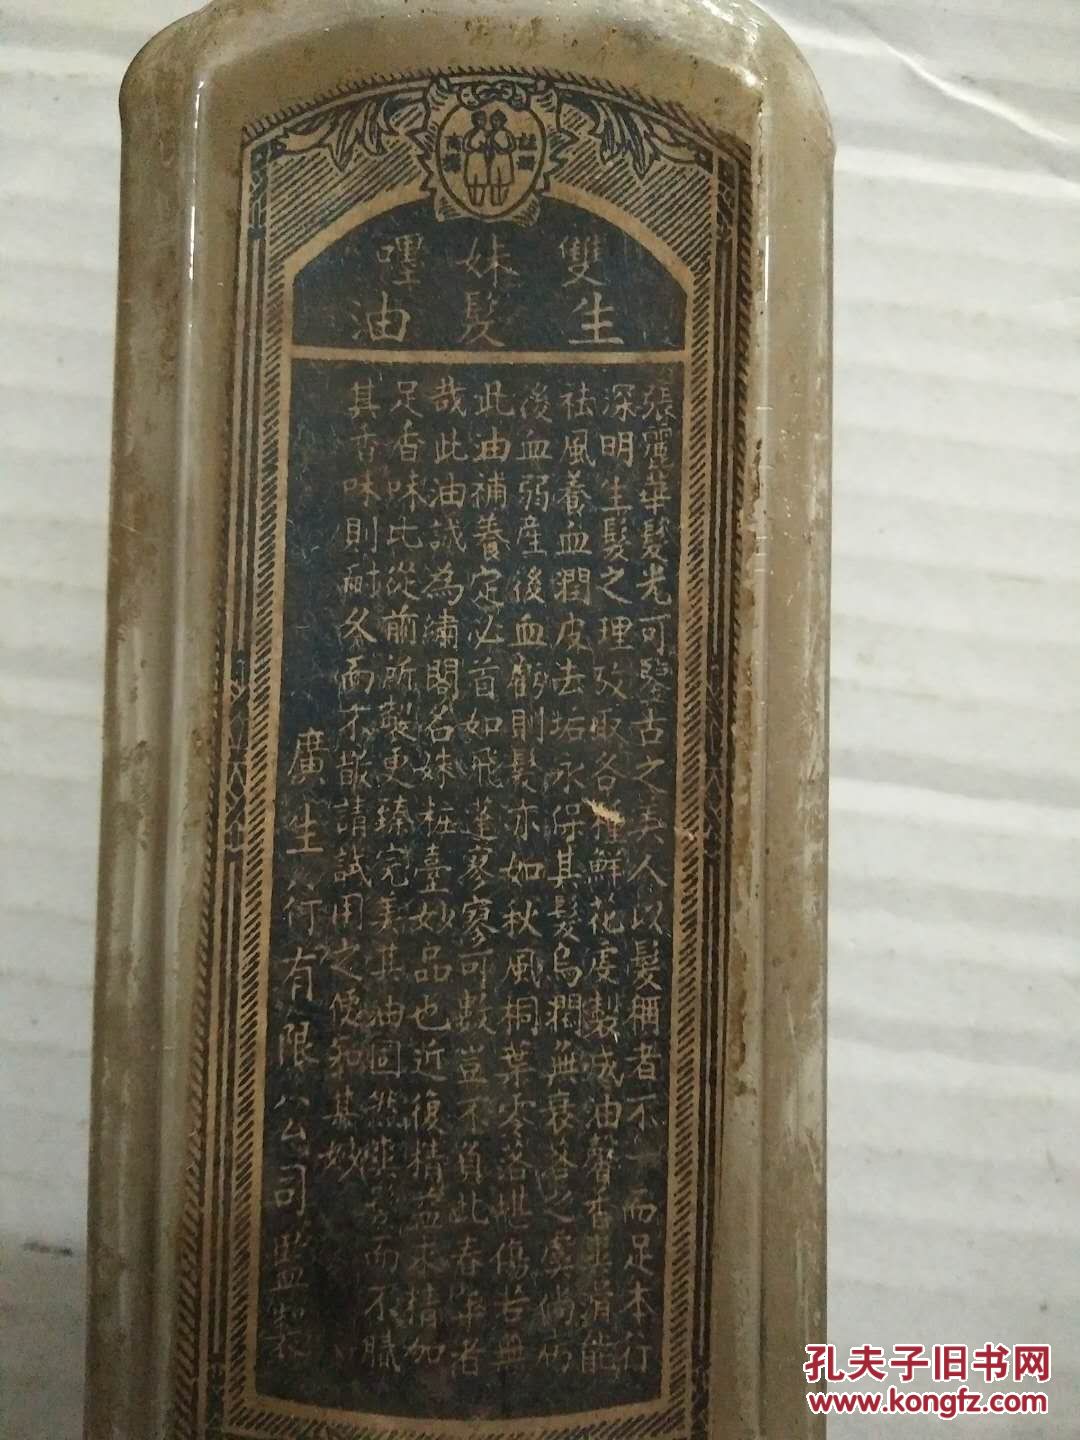 雙妹嚜
生髮油
張麗華髮光可鑒古之美人以髮稱者不一而足本行
深明生髮之理故取各種鮮花虔製成油馨香異常能
祛風養血潤皮去垢永保其髮烏潤無衰落之虞倘病
後血弱產後血虧則髮亦如秋風桐葉零落堪傷苦無
此油補養定必首如飛蓬寥寥可數豈不負此春華者
哉此油誠為繡閣名姝粧臺妙品也近復精益求精加
足香味比從前所製更臻完美其油固然維髮而不膩
其香味則耐久而不散請試用之便知其妙
廣生行有限公司監製
孔夫子旧书网
www.kongfz.com